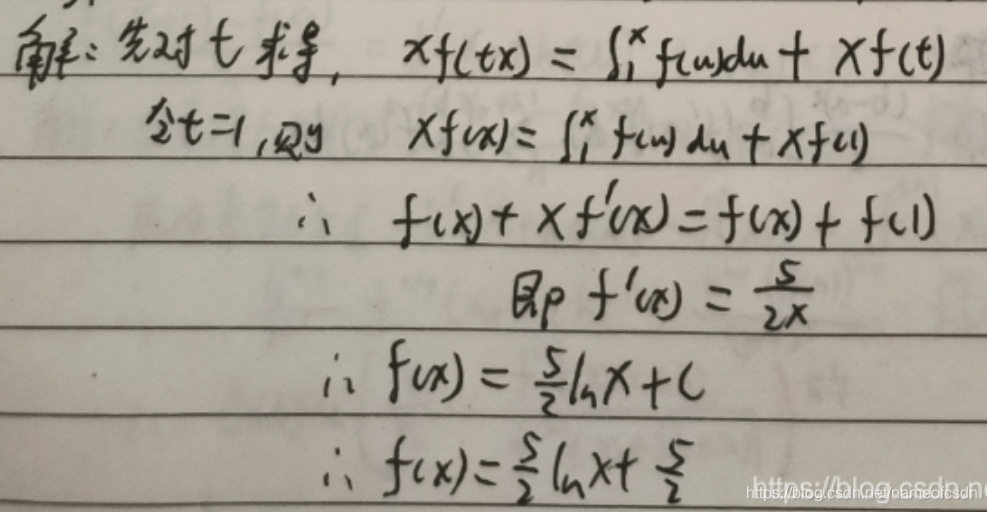 解：先对t求导，xf(tx) = ∫₁ˣ f(u)du + xf(t)
令t=1，则 xf(x) = ∫₁ˣ f(u)du + xf(1)
∴ f(x) + xf'(x) = f(x) + f(1)
即 f'(x) = 5/2x
∴ f(x) = 5/2 lnx + C
∴ f(x) = 5/2 lnx + 5/2
https://blog.csdn.ne
https://blog.csdn.net/nameofcsdn